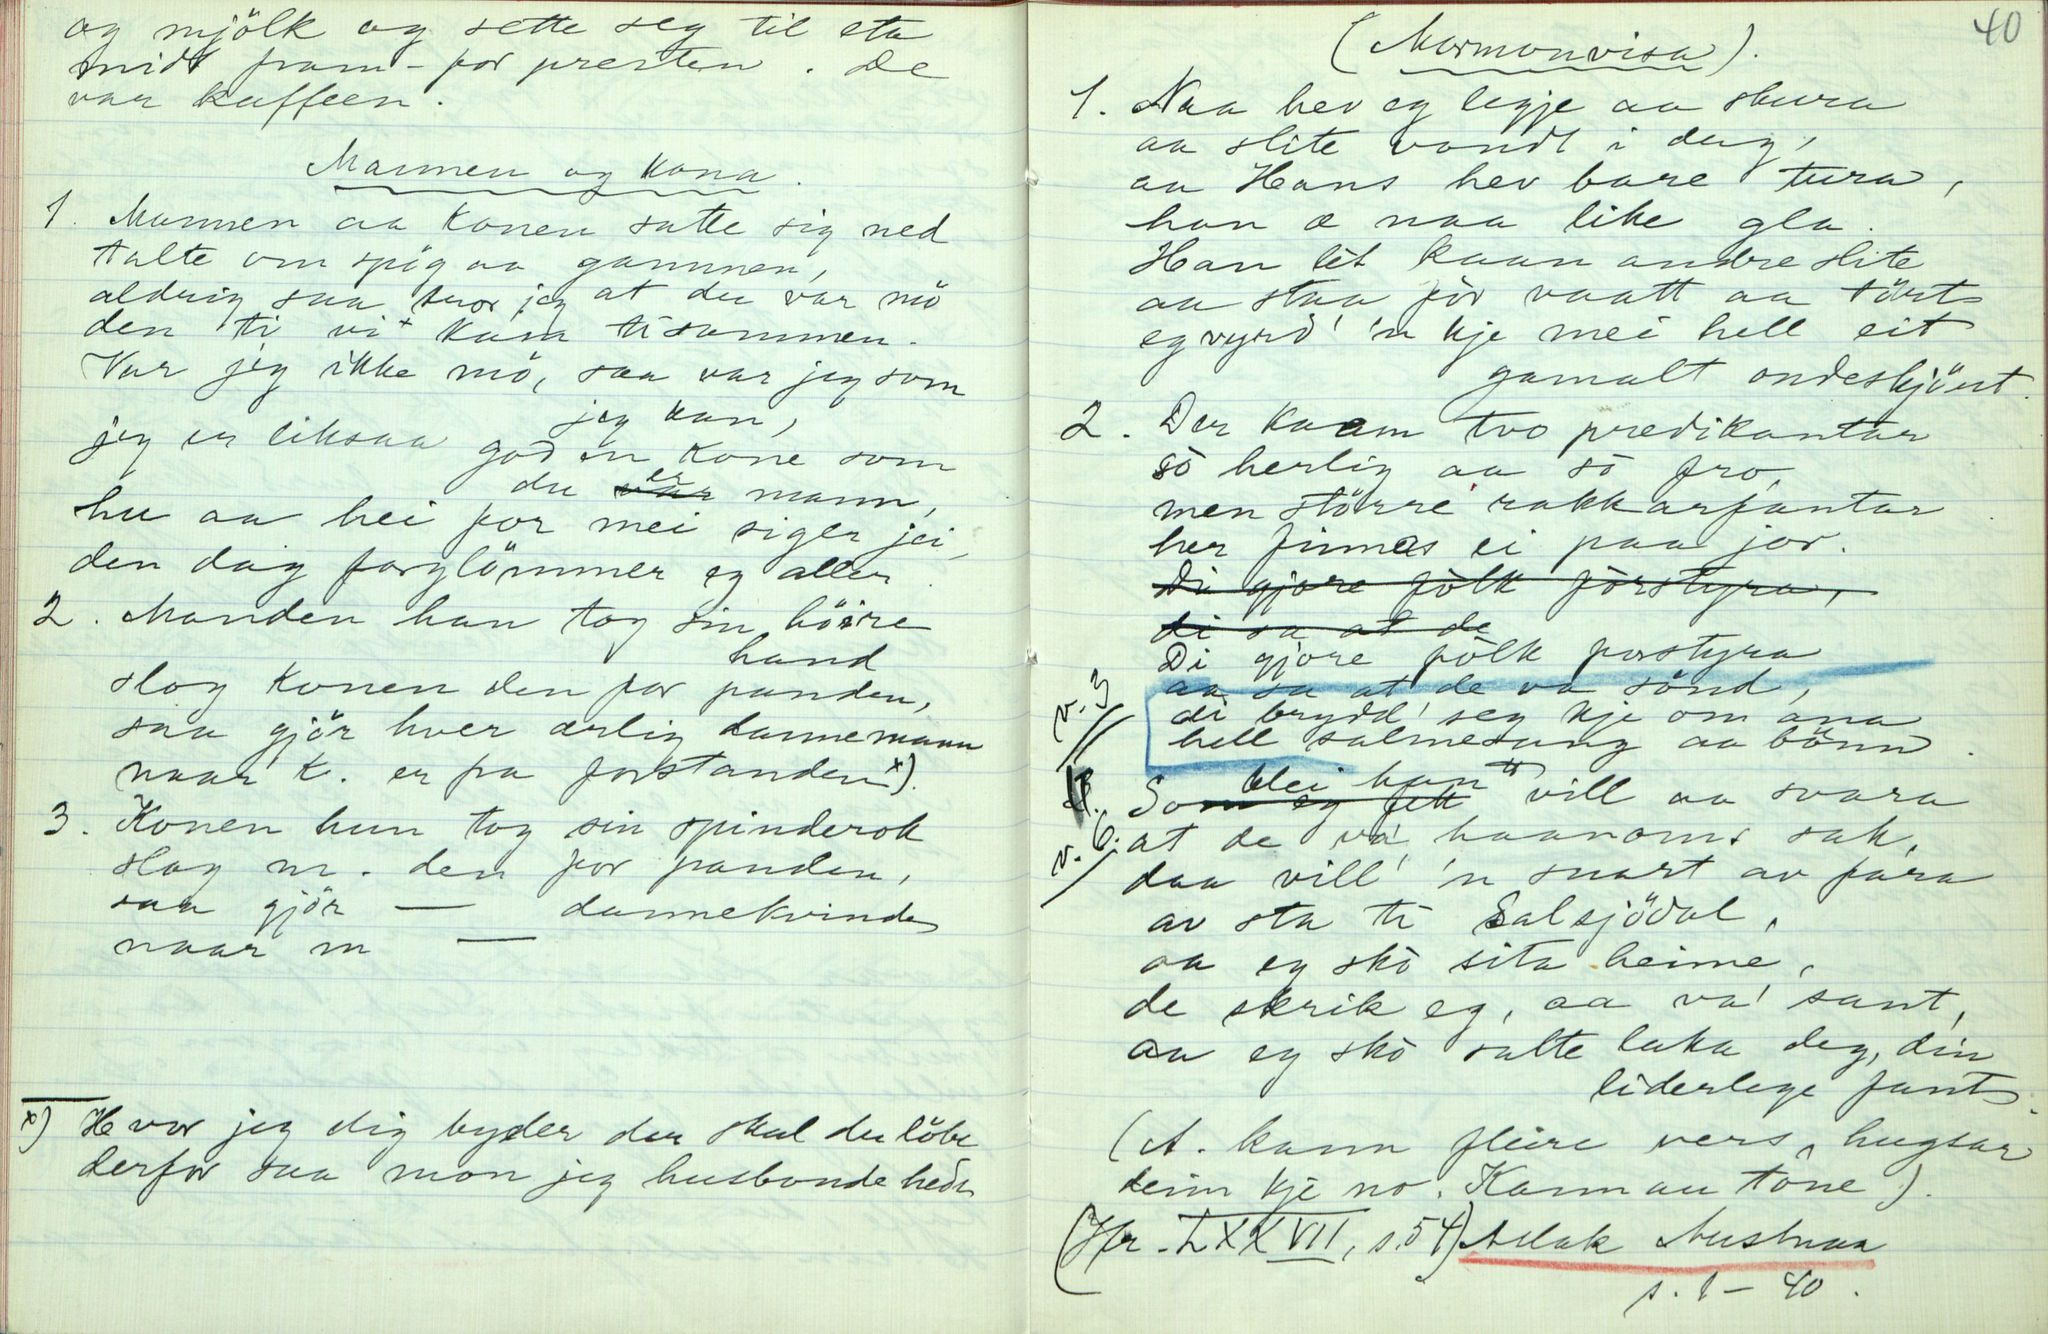 og mjölk og sette seg til eta
midt fram-for presten. De
var kaffeen.
Mannen og kona.
1. Mannen aa konen satte sig ned
talte om spög aa gammen,
aldrig saa tror jeg at du var mö
den ti vi kam tisammen.
Var jeg ikke mö, saa var jeg som
jeg kan,
jeg er liksaa god en kone som
du var er mann,
hu aa hei for mei siger jei,
den dag forglömmer eg aller.
2. Manden han tog sin höire
hand
slog konen den for panden,
saa gjör hver ærlig dannemann
naar k. er fra forstanden x).
3. Konen hun tog sin spinderok
slog m. den for panden,
saa gjör — dannekvinde
naar m —
x) Hvor jeg dig byder der skal du löbe
derfor saa mon jeg husbonde hede
40
(Mormonvisa).
1. Naa hev eg legje aa skura
aa slite vondt i dag,
aa Hans hev bare tura,
han æ naa like gla.
Han lèt kaan andre slite
aa staa för vaatt aa tört
eg vyrd' 'n kje mei hell eit
gamalt ondeskjört.
2. Der kaam tvo predikantar
sò herlig aa sò fro,
men större rakkarfantar
her finnas ei paa jor.
Di gjore fòlk förstyra,
di sa at de
Di gjore fòlk forstyra
v. 3
aa sa at de va sònd,
di brydd' seg kje om ana
hell salmesang aa bönn.
Som eg fekk blei han vill aa svara
v. 6. at de va haanoms sak,
daa vill' 'n snart av fara
av sta ti Salsjödal,
aa eg skò sita heime,
de skrik eg, aa va' sant,
aa eg skò salte laka deg, din
liderlege fant.
(A. kann fleire vers, hugsar
deim kje no. Kann au tòne).
(Hr. LXXVII, s. 54) Aslak
s. 1 – 40.